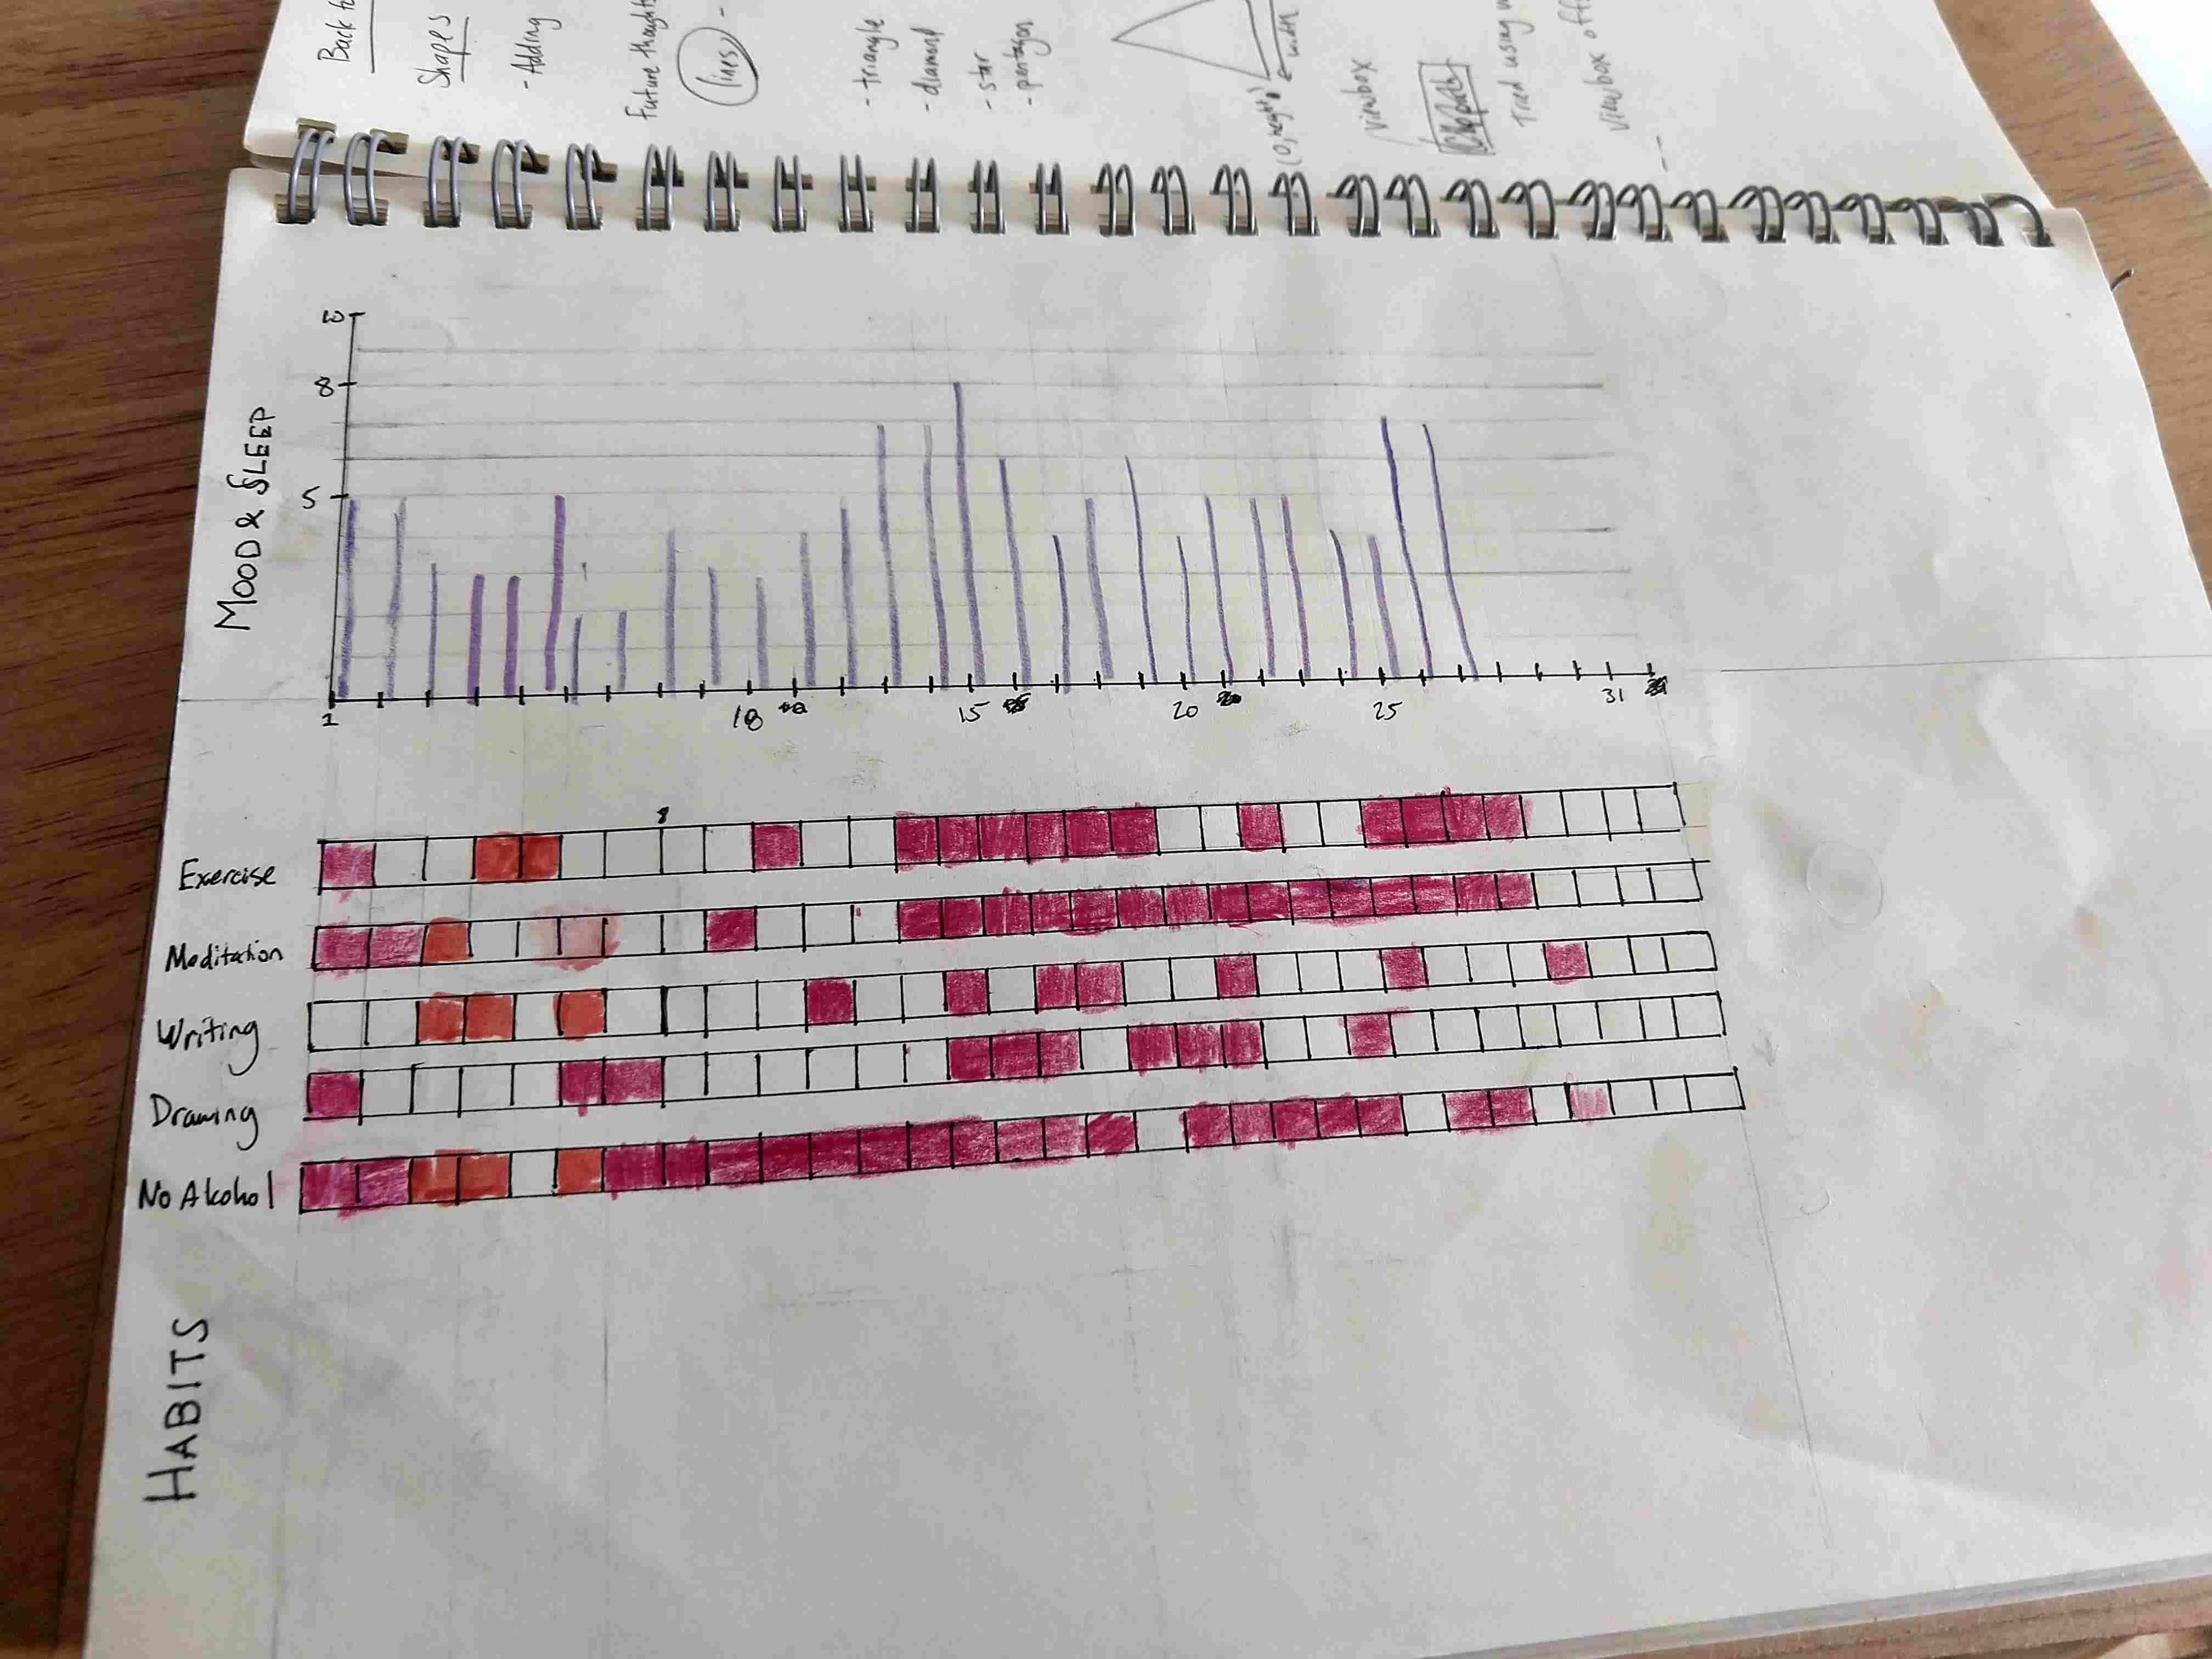 Back to
Shapes
- Adding
Future thoughts
lines
- triangle
- diamond
- star
- pentagon
(0, height)
width
viewbox
Clippath
Tried using
Viewbox off
MOOD & SLEEP
10
8
5
1
10
15
20
25
31
8
Exercise
Meditation
Writing
Drawing
No Alcohol
HABITS